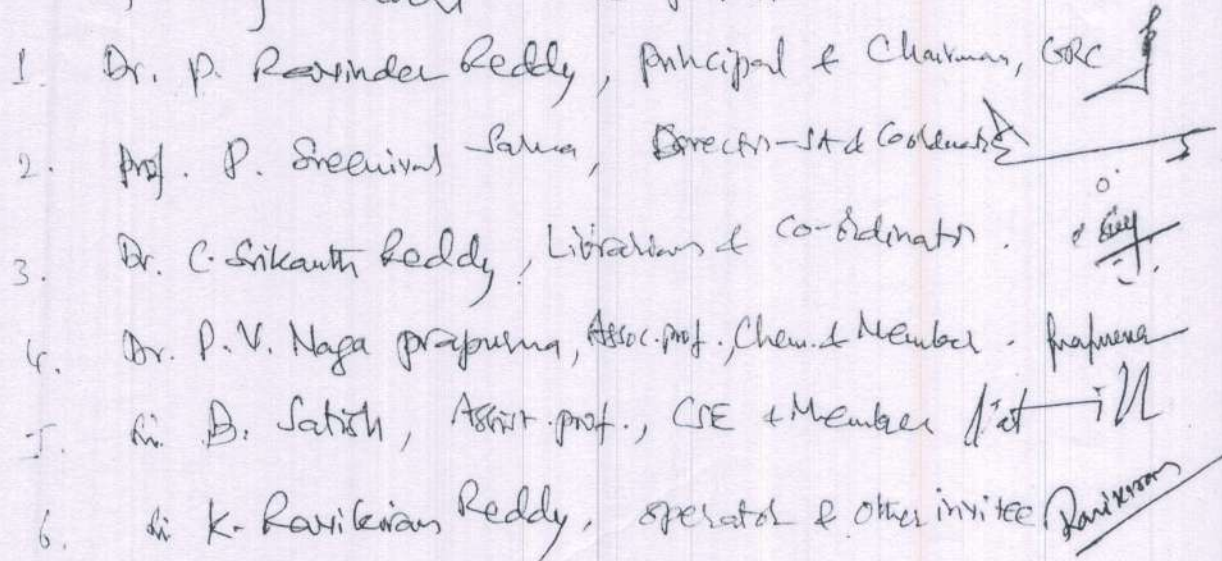 1. Dr. P. Ravinder Reddy, principal & Chairman, GRC
2. Prof. P. Sreenivas Sarma, Director-SA & Coordinator
3. Dr. C. Srikanth Reddy, Librarian & Co-ordinator.
4. Dr. P.V. Naga prapurna, Assoc. prof., Chem. & Member. Prapurna
5. Sri. B. Satish, Assist. prof., CSE & Member
6. Sri K. Ravikiran Reddy, operator & other invitee Ravikiran